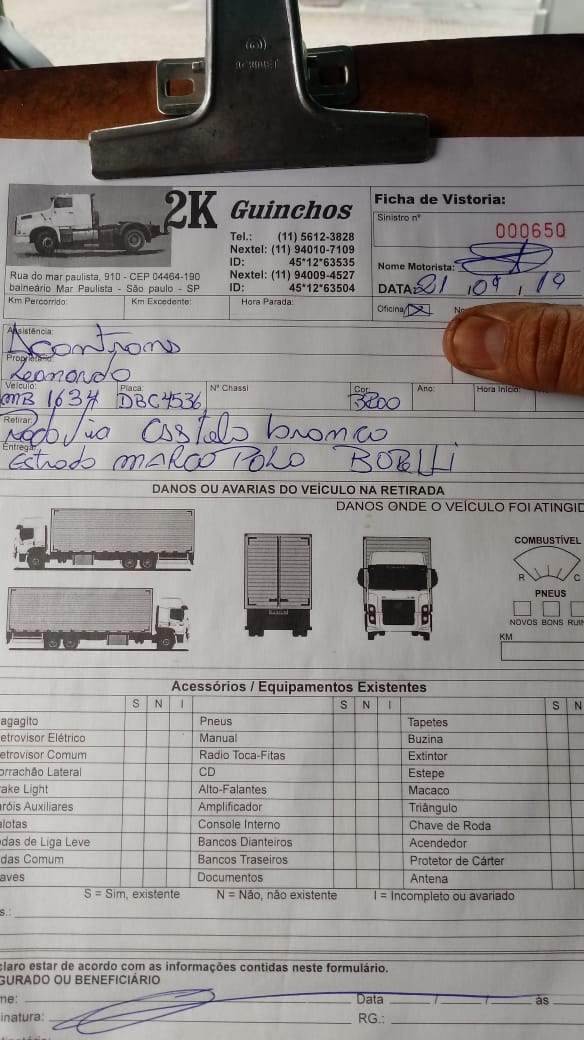 2K Guinchos
Tel.: (11) 5612-3828
Nextel: (11) 94010-7109
ID: 45*12*63535
Nextel: (11) 94009-4527
ID: 45*12*63504
Rua do mar paulista, 910 - CEP 04464-190
balneário Mar Paulista - São paulo - SP
Ficha de Vistoria:
Sinistro nº
000650
Nome Motorista:
DATA: 21, 09, 19
Oficina
Km Percorrido: Km Excedente: Hora Parada:
Assistência: Acontrans
Proprietário: Leonardo
Veículo: MB 1634 Placa: DBC4536 Nº Chassi Cor: Ano: Hora Início:
Retirar: Rodovia Castelo branco
Entregar: Estrada MARCO POLO
DANOS OU AVARIAS DO VEÍCULO NA RETIRADA
DANOS ONDE O VEÍCULO FOI ATINGID
COMBUSTÍVEL
R C
PNEUS
NOVOS BONS RUIN
KM
Acessórios / Equipamentos Existentes
S N I S N I S N
agagito Pneus Tapetes
etrovisor Elétrico Manual Buzina
etrovisor Comum Radio Toca-Fitas Extintor
orrachão Lateral CD Estepe
rake Light Alto-Falantes Macaco
aróis Auxiliares Amplificador Triângulo
alotas Console Interno Chave de Roda
odas de Liga Leve Bancos Dianteiros Acendedor
das Comum Bancos Traseiros Protetor de Cárter
aves Documentos Antena
S = Sim, existente N = Não, não existente I = Incompleto ou avariado
s.:
claro estar de acordo com as informações contidas neste formulário.
GURADO OU BENEFICIÁRIO
me: Data / / às
inatura: RG.: